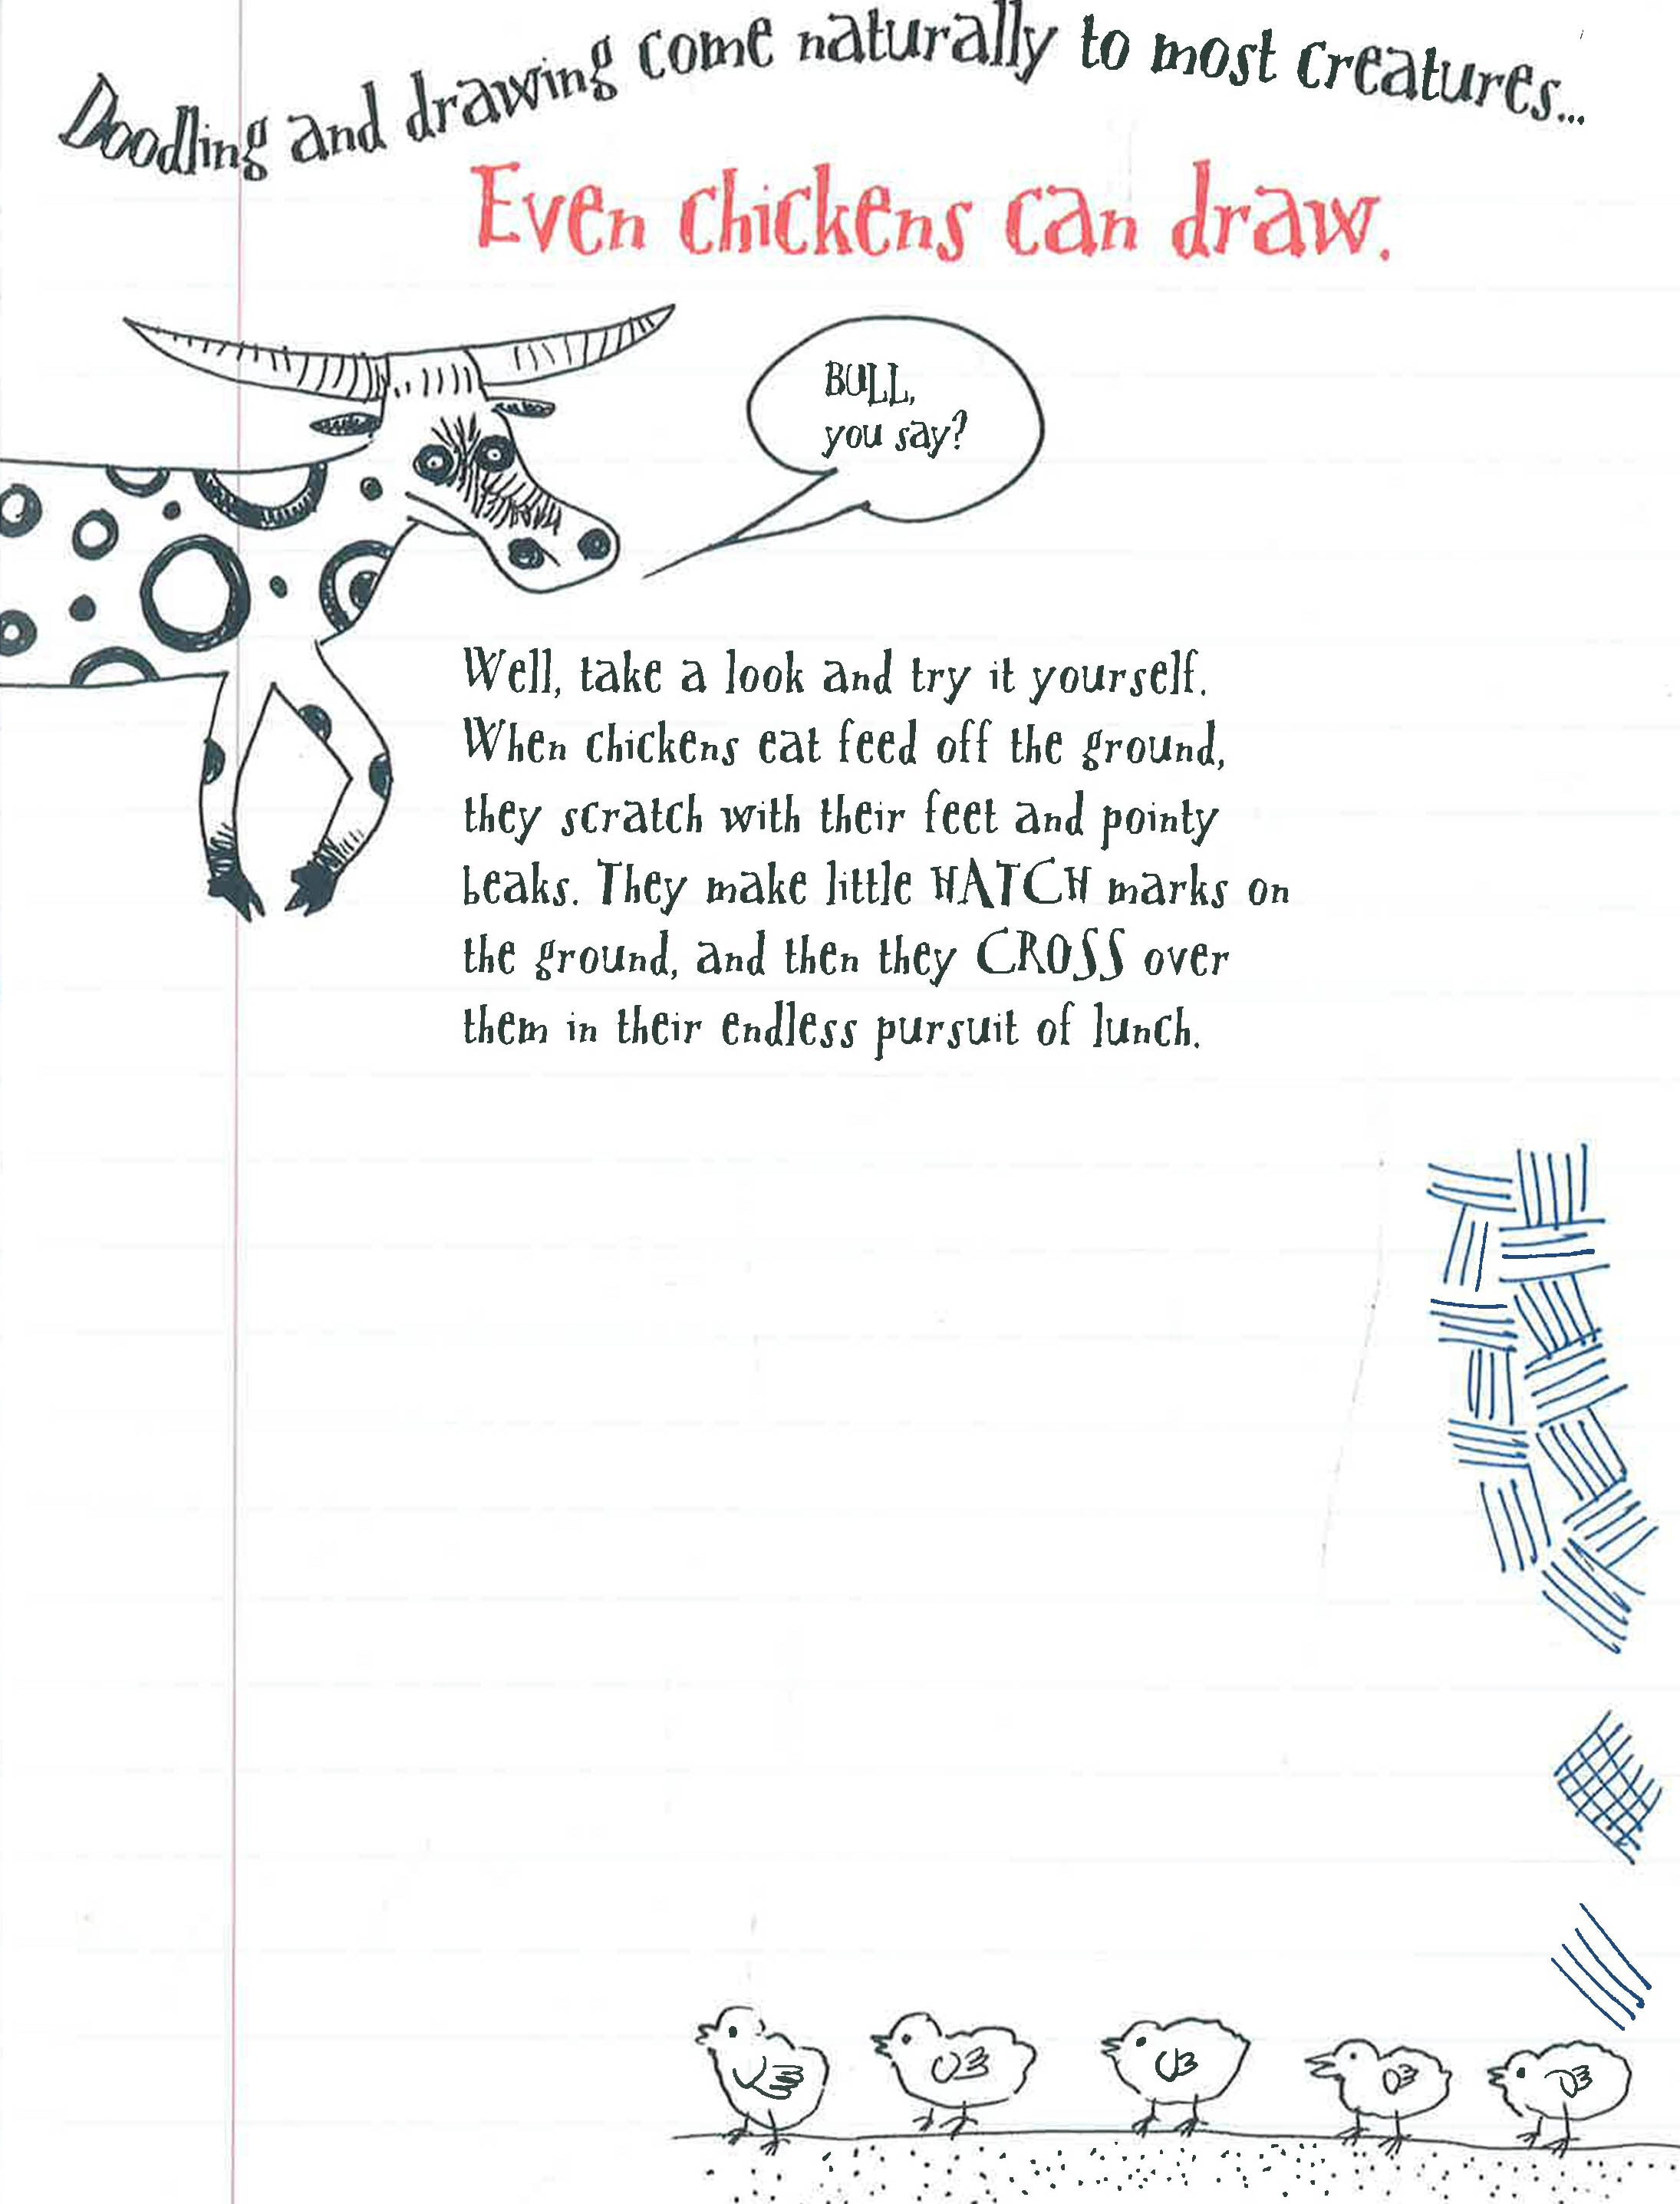 Doodling and drawing come naturally to most creatures...
Even chickens can draw.
BULL,
you say?
Well, take a look and try it yourself.
When chickens eat feed off the ground,
they scratch with their feet and pointy
beaks. They make little HATCH marks on
the ground, and then they CROSS over
them in their endless pursuit of lunch.